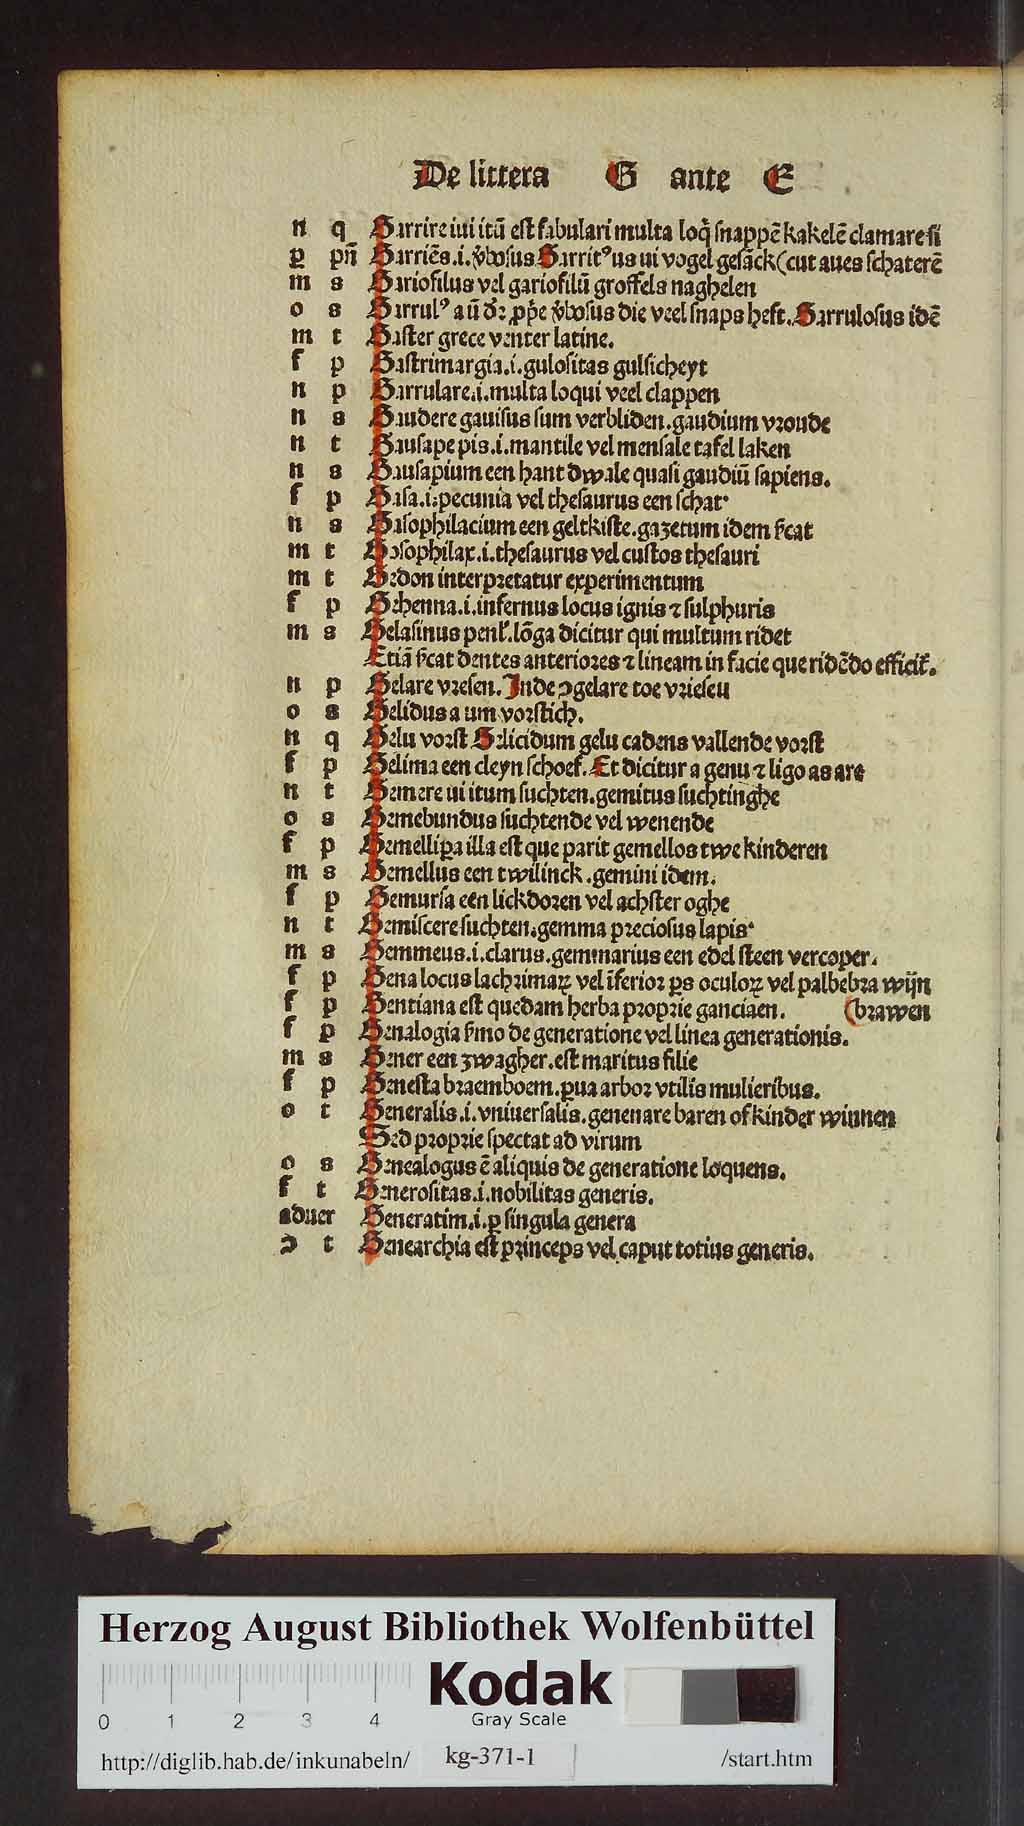 De littera G ante E
n q Garrire iui itū est fabulari multa loq̄ snappē kakelē clamare si
p pn̄ Garriēs .i. v̄bosus Garritꝰ us ui vogel gesāck (cut aues schaterē
m s Gariofilus vel gariofilū groffels naghelen
o s Garrulꝰ a ū v̄bosus die veel snaps heft. Garrulosus idē
m t Gaster grece venter latine.
f p Gastrimargia .i. gulositas gulsicheyt
n p Garrulare .i. multa loqui veel clappen
n s Gaudere gauisus sum verbliden . gaudium vroude
n t Gausape pis .i. mantile vel mensale tafel laken
n s Gausapium een hant dwale quasi gaudiū sapiens.
f p Gasa .i. pecunia vel thesaurus een schat
n s Gasophilacium een geltkiste . gazetum idem s̄cat
m t Gosophilax .i. thesaurus vel custos thesauri
m t Gedon interpretatur experimentum
f p Gehenna .i. infernus locus ignis ⁊ sulphuris
m s Gelasinus penl̄. lōga dicitur qui multum ridet
Etiā s̄cat dentes anteriores ⁊ lineam in facie que ridēdo efficit̄.
n p Gelare vresen. Inde ꝯgelare toe vriesen
o s Gelidus a um vorstich.
n q Gelu vorst Gelicidum gelu cadens vallende vorst
f p Gelima een cleyn schoef. Et dicitur a genu ⁊ ligo as are
n t Gemere ui itum suchten . gemitus suchtinghe
o s Gemebundus suchtende vel wenende
f p Gemellipa illa est que parit gemellos twe kinderen
m s Gemellus een twilinck . gemini idem.
f p Gemursa een lickdoren vel achster oghe
n t Gemiscere suchten . gemma preciosus lapis
m s Gemmeus .i. clarus . gemmarius een edel steen vercoper.
f p Gena locus lachrimaꝝ vel īferior ꝑs oculoꝝ vel palbebra wijn
f p Gentiana est quedam herba proprie ganciaen. (brawen
f p Genalogia s̄mo de generatione vel linea generationis.
m s Gener een zwagher . est maritus filie
f p Genesta braemboem . ꝑua arbor vtilis mulieribus.
o t Generalis .i. vniuersalis . generare baren of kinder winnen
Sed proprie spectat ad virum
o s Genealogus ē aliquis de generatione loquens.
f t Generositas .i. nobilitas generis.
aduer Generatim .i. ꝑ singula genera
ɔ t Genearchia est princeps vel caput totius generis.
Herzog August Bibliothek Wolfenbüttel
Kodak
Gray Scale
0 1 2 3 4
http://diglib.hab.de/inkunabeln/ kg-371-1 /start.htm